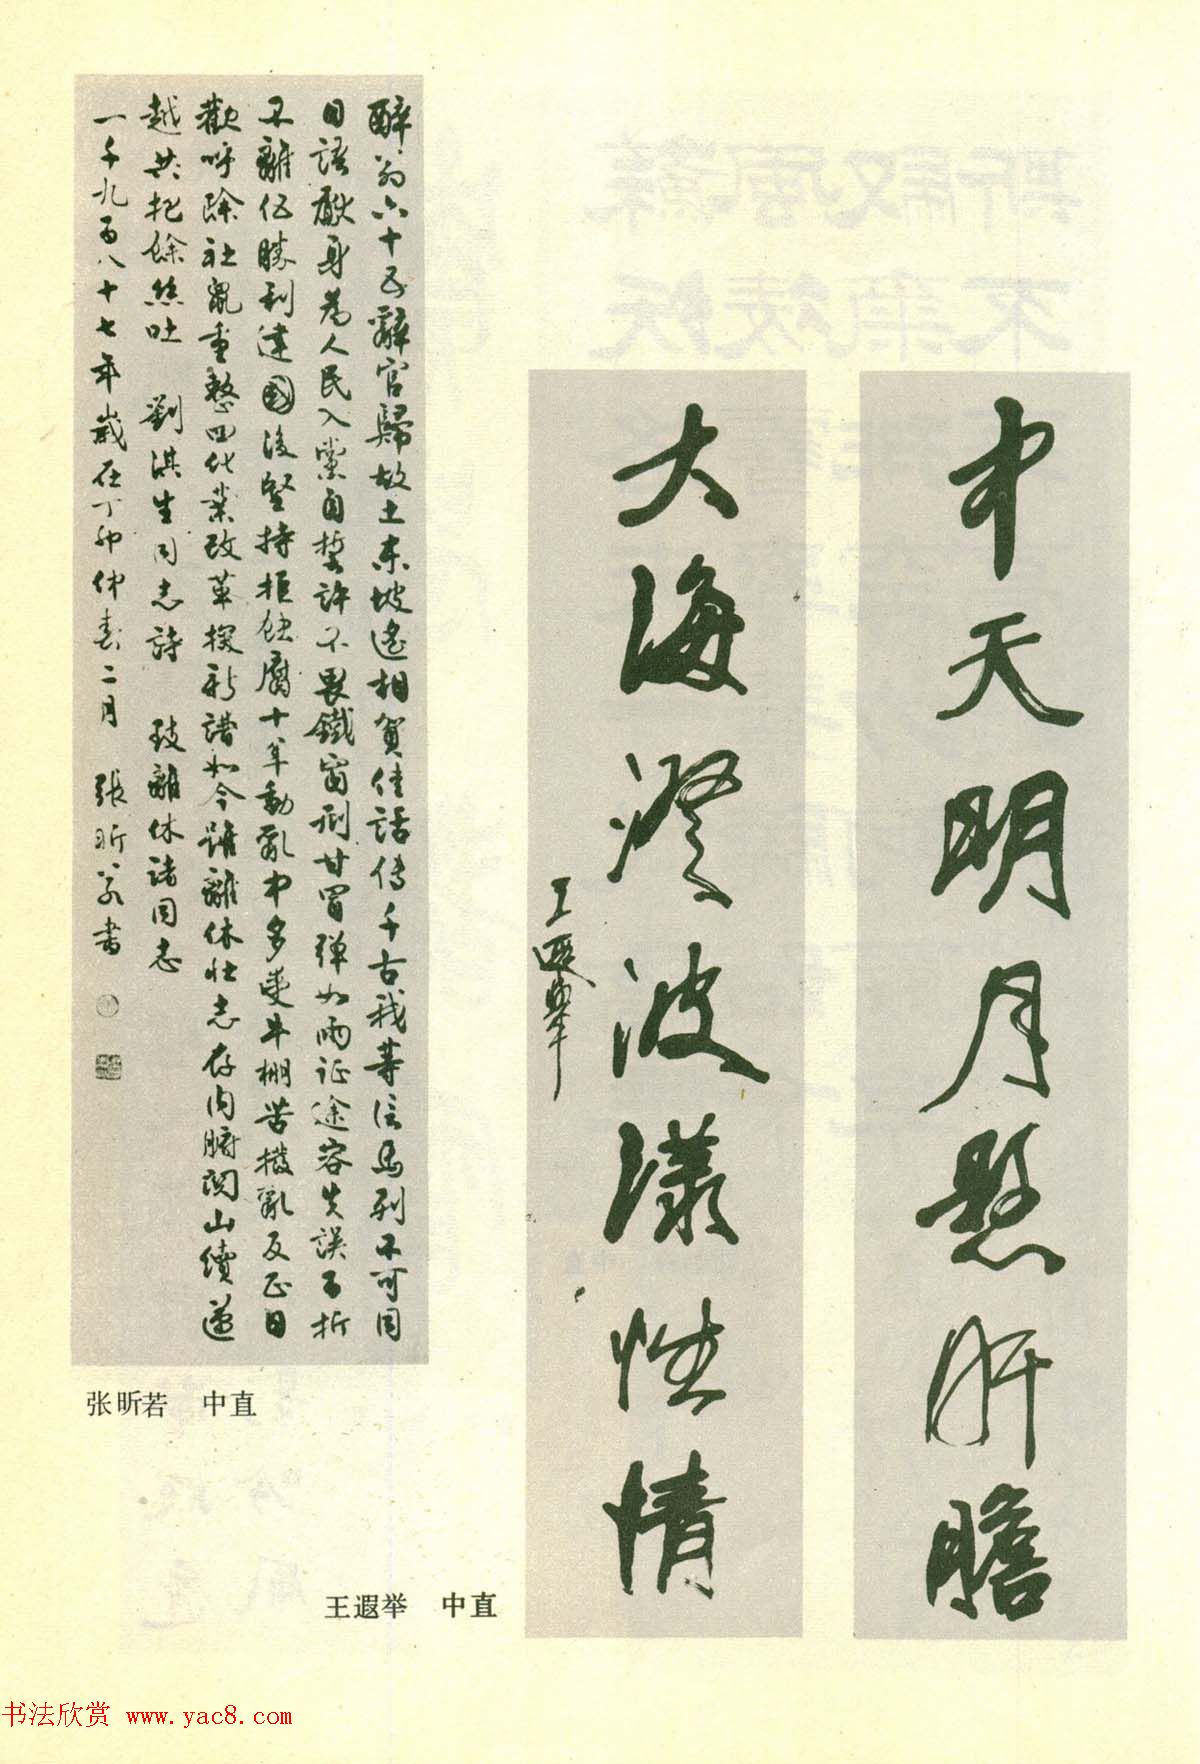 中天明月照肝膽
大海澄波漾性情
王遐舉
王遐举 中直
醉翁六十五辭官歸故土東坡遙相賀佳話傳千古我等信馬列不可同
日語獻身為人民入黨自誓許不畏鐵窗刑甘冒彈如雨征途容失誤百折
不離伍勝利建國後堅持拒蝕腐十年動亂中多受牛棚苦撥亂反正日
歡呼除社鼠重整四化業改革探新譜如今雖離休壯志存肉腑関山續遄
越共把餘絲吐 劉淇生同志詩 致離休諸同志
一千九百八十七年歲在丁卯仲春二月 張昕若書
张昕若 中直
书法欣赏 www.yac8.com